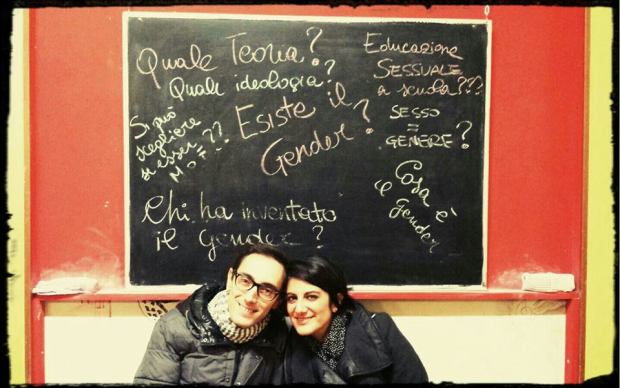 Quale Teoria?
Quale ideologia?
Educazione
SESSUALE
a scuola???
Si può
scegliere
se esser
M o F??
Esiste il
Gender?
SESSO
=
GENERE?
Cosa è
il Gender
Chi ha inventato
il gender?